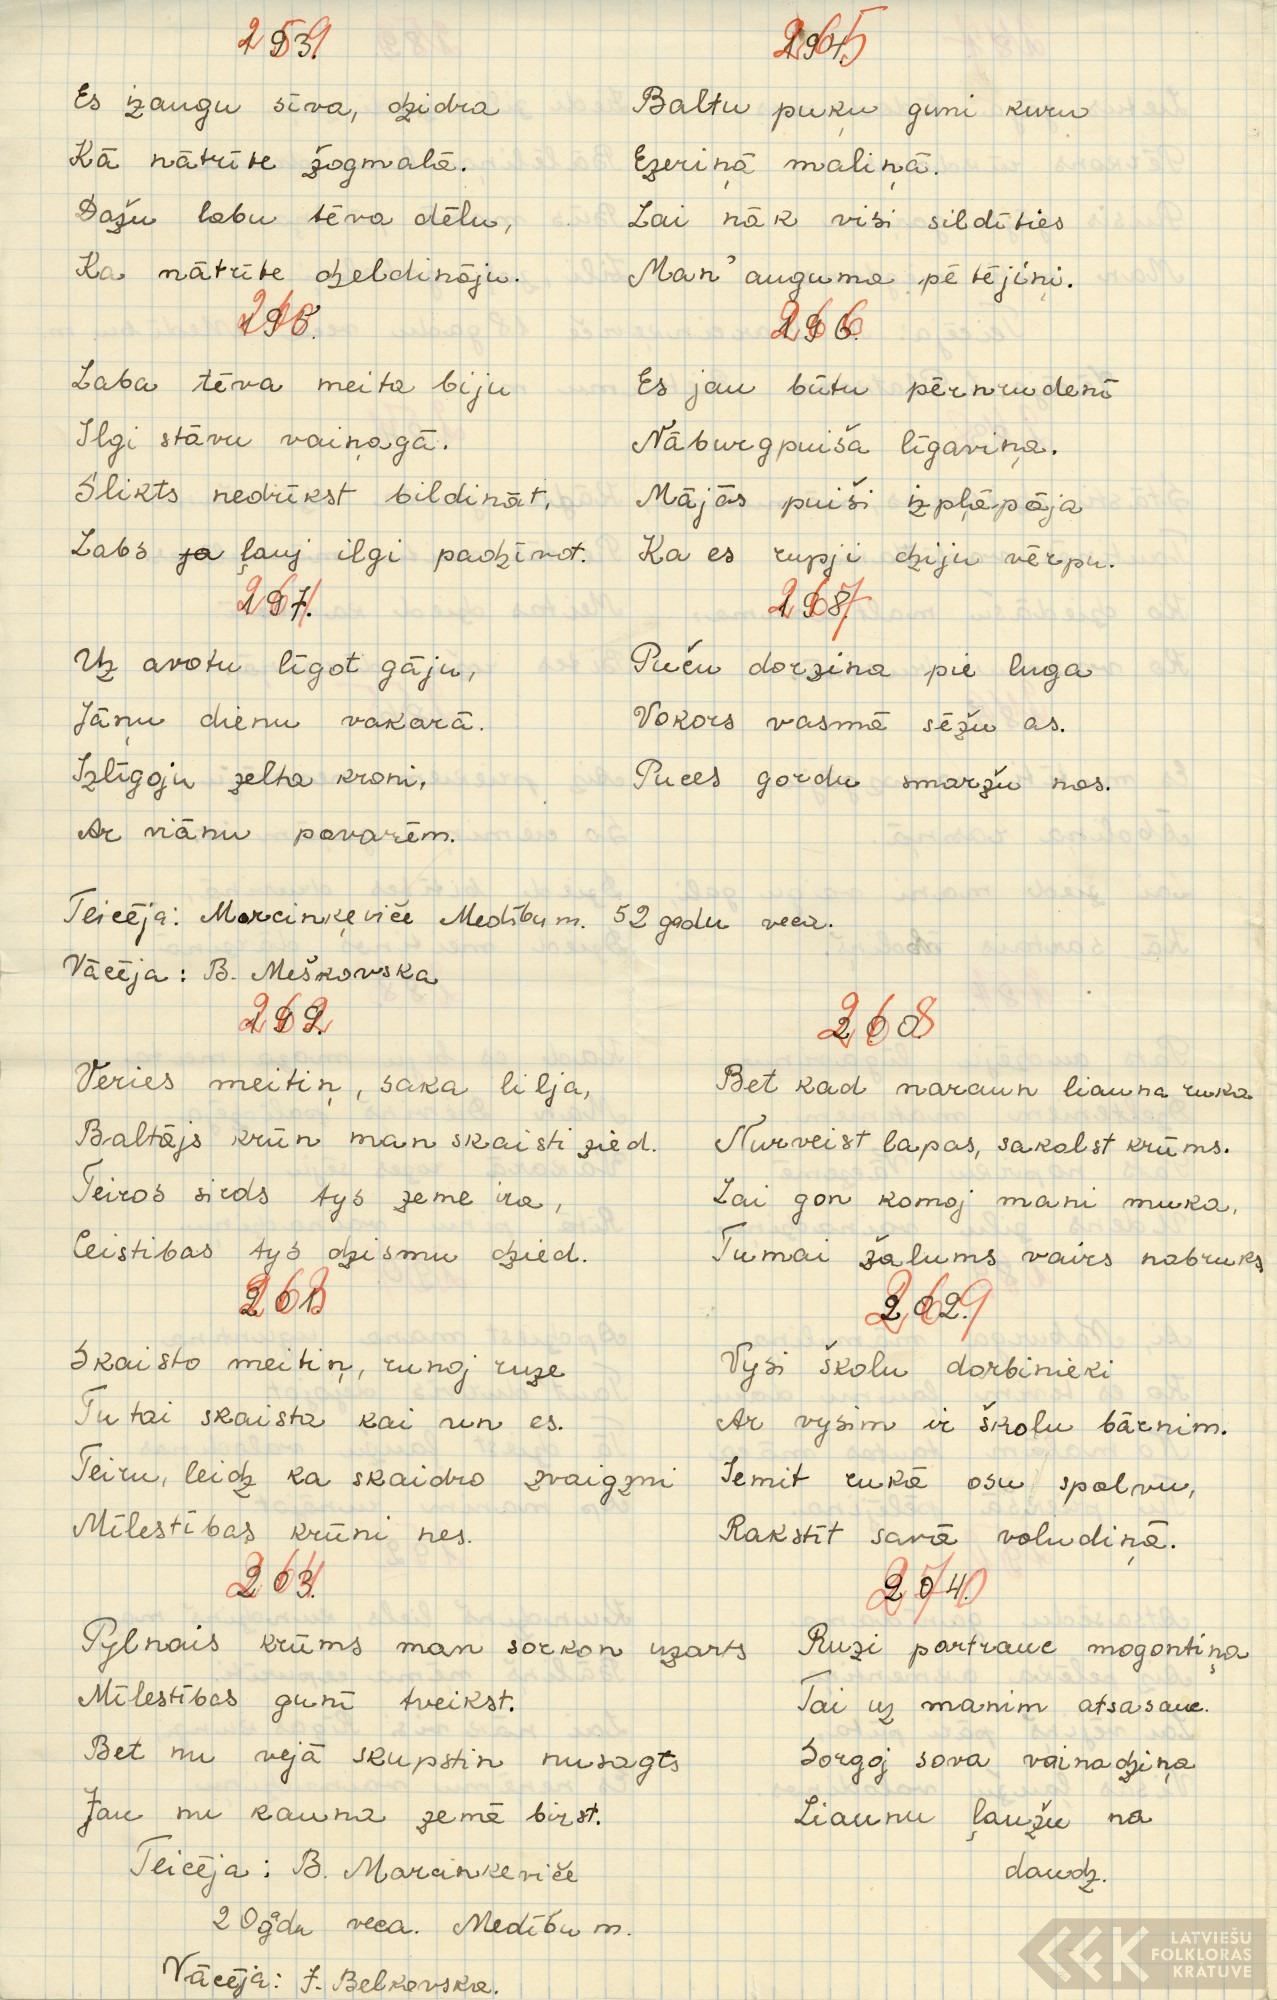 259
193.
Es izaugu sīva, dzidra
Kā nātrīte žogmalā.
Dažu labu tēva dēlu,
Ka nātrīte dzeldināju.
260
195.
Laba tēva meita biju
Ilgi stāvu vaiņagā.
Slikts nedrīkst bildināt,
Labs ja ļauj ilgi padzīvot.
261
197.
Uz avotu līgot gāju,
Jāņu dienu vakarā.
Izlīgoju zelta kroni,
Ar viānu pavarēm.
265
194.
Baltu puķu guni kuru
Ezeriņā maliņā.
Lai nāk viši sildīties
Man' auguma pētējiņi.
266
196.
Es jau būtu pērnrudenī
Nāburgpuiša līgaviņa.
Mājās puiši izpļāpāja
Ka es rupji dziju vērpu.
267
198.
Puču dorzina pie luga
Vokors vasmā sēžu as.
Puces gordu smaržu nos.
Teicēja: Marcinķeviče Medību m. 52 gadu veca.
Vācēja: B. Meškovska
262
199.
Veries meitiņ, saka lilja,
Baltājs krūn man skaisti zied.
Teiros sirds tys zeme ira,
Ceistibas tys dzismu dzied.
263
201.
Skaisto meitiņ, runoj ruze
Tu tai skaista kai un es.
Teiru, leidz ka skaidro zvaigzni
Mīlestības krūni nes.
264
203.
Pylnais krūms man sorkon uzarts
Mīlestības gunī tveikst.
Bet nu vejā skupstin nusagts
Jau nu kauna zemē birst.
Teicēja: B. Marcinkeviče
20 gadu veca. Medību m.
Vācēja: J. Belkovska.
268
200.
Bet kad naraun liauna ruka
Nurveist lapas, sakolst krūms.
Lai gon komoj mani muka,
Tumai žalums vairs nabruks
269
202.
Vysi školu dorbinieki
Ar vysim ir školu bārnim.
Iemit rukā osu spolvu,
Rakstīt savā voludiņā.
270
204.
Ruzi portrauc mogontiņa
Tai uz manim atsasauc.
Sorgoj sova vainadziņa
Liaunu ļaužu na
daudz.
LATVIEŠU
FOLKLORAS
KRATUVE